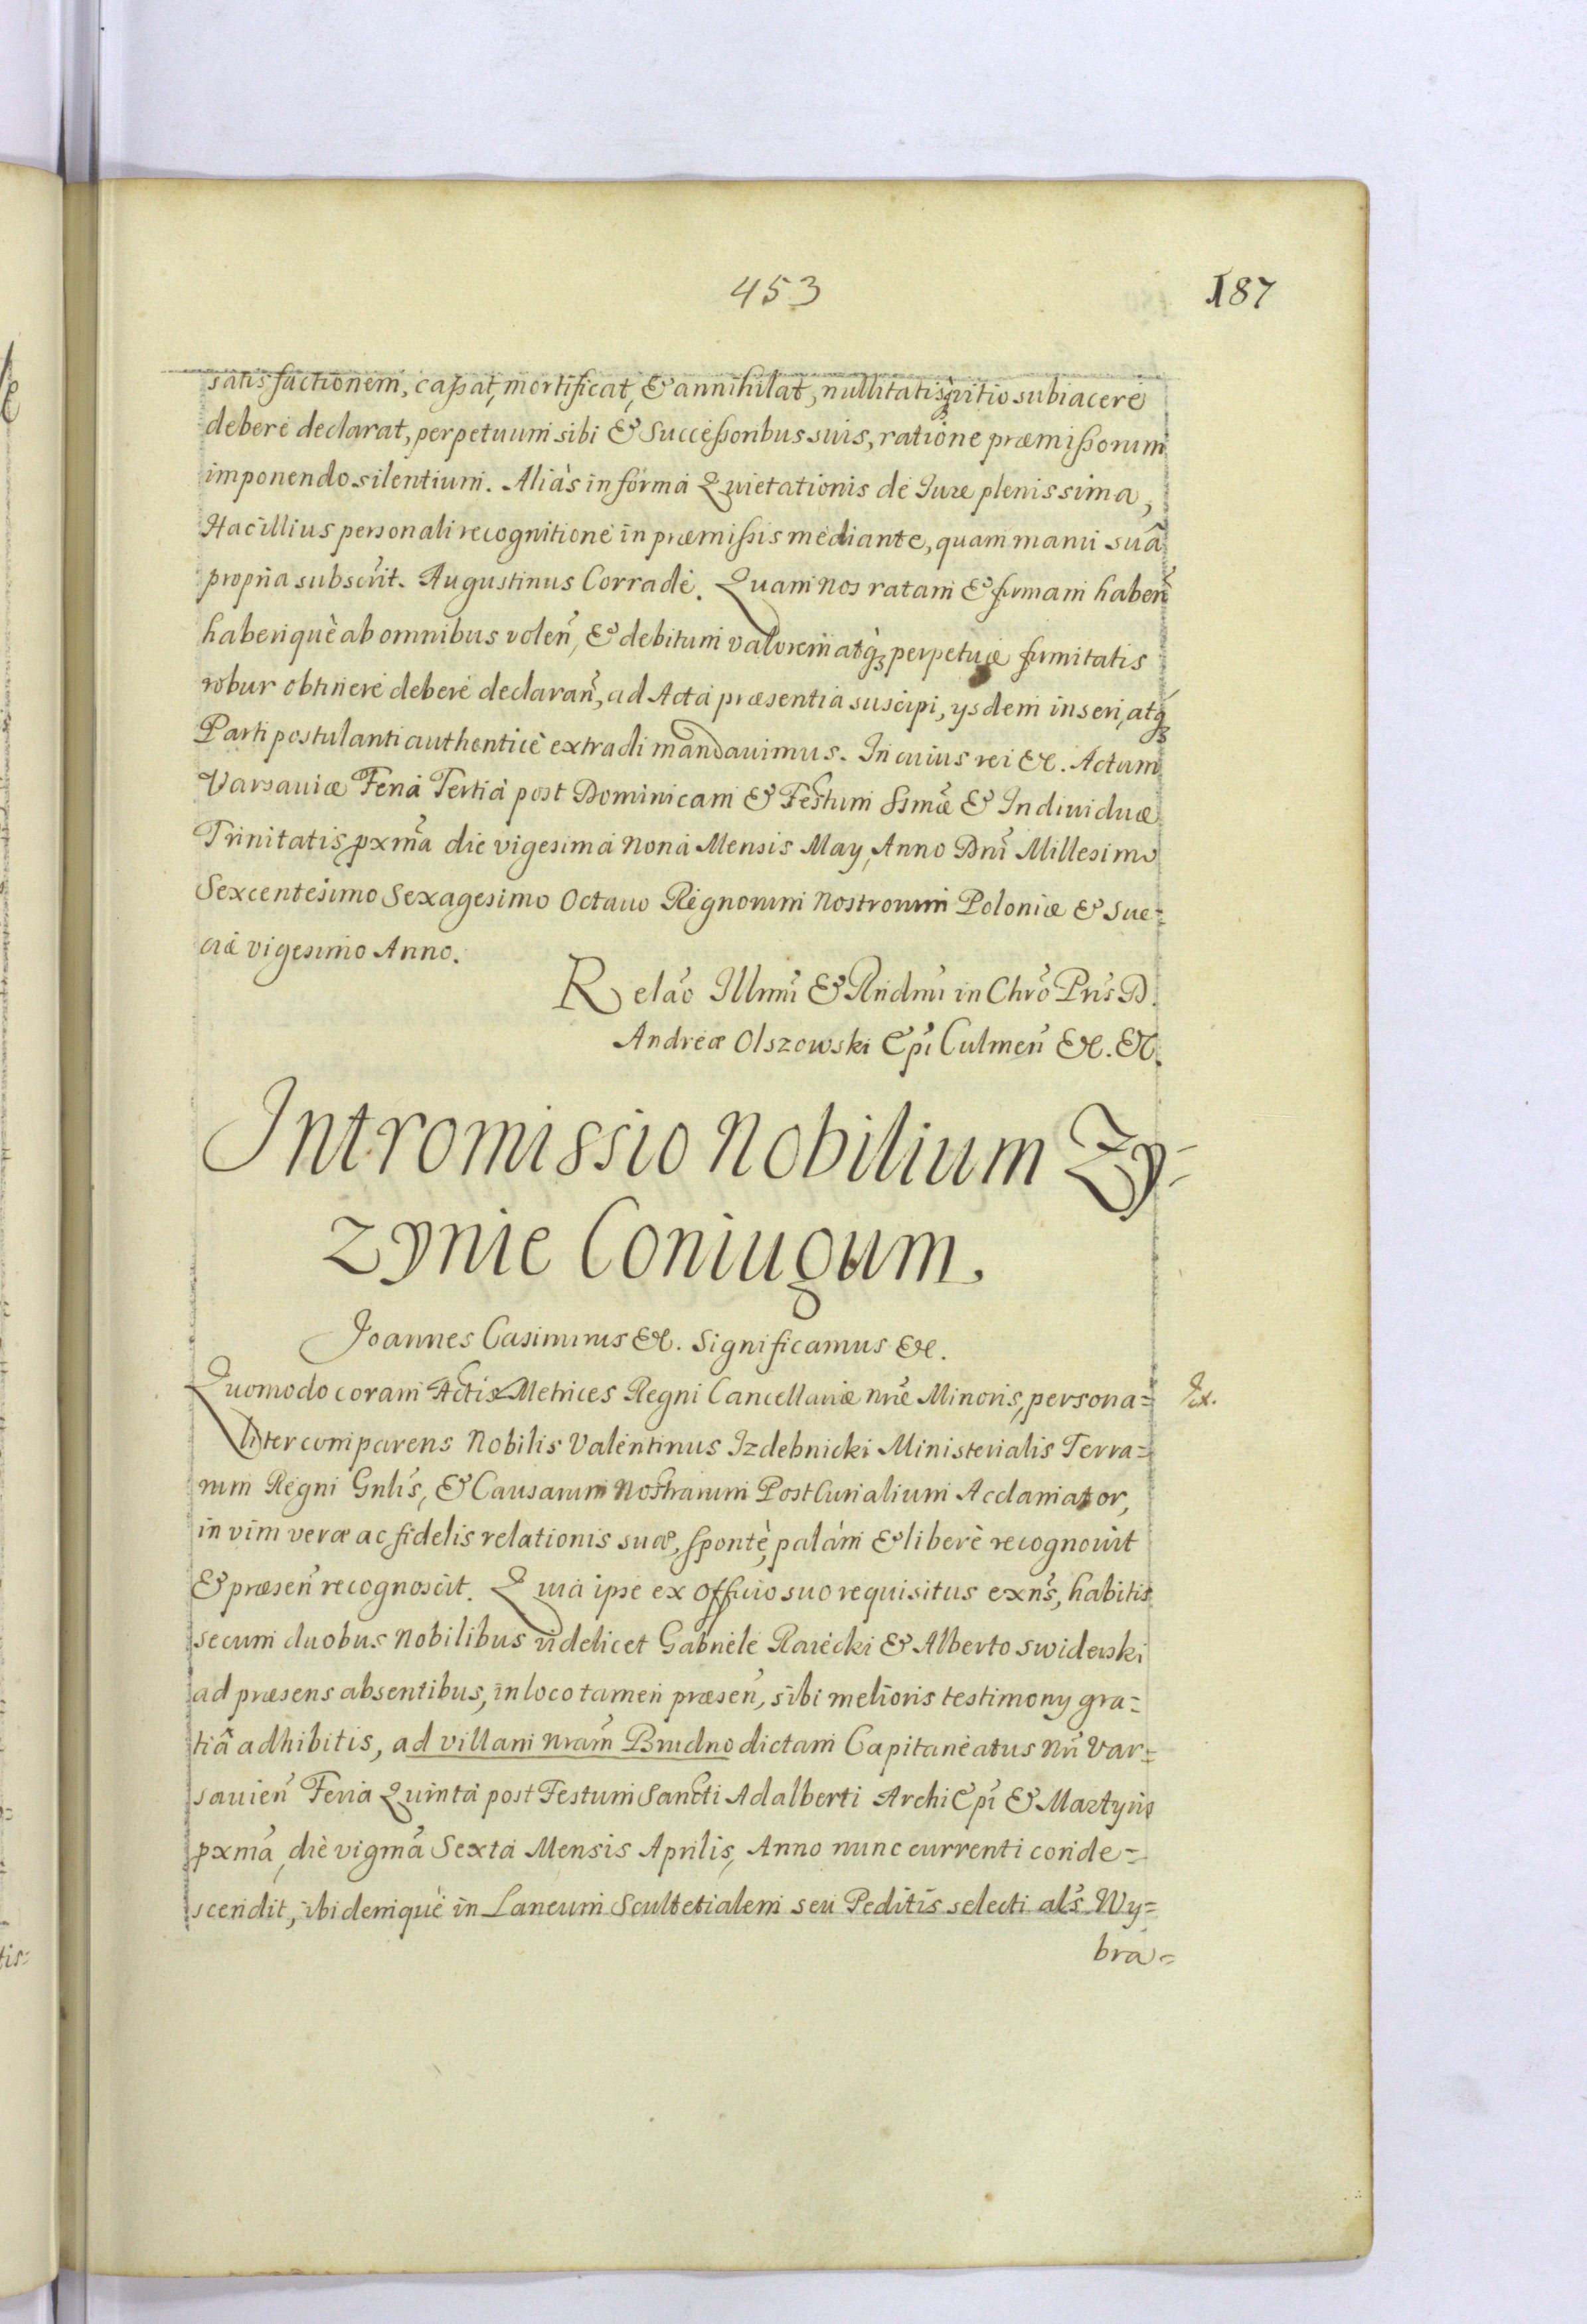 453
187
satisfactionem, cassat, mortificat, & annihilat, nullitatisq; vitio subiacere
debere declarat, perpetuum sibi & Successoribus suis, ratione præmissorum
imponendo silentium. Aliàs in formâ Quietationis de Iure plenissima,
Hac illius personali recognitione in præmissis mediante, quam manu suâ
propria subscrit. Augustinus Corrade. Quam nos ratam & firmam haben̄
haberiquè ab omnibus volen̄, & debitum valorem atq; perpetuæ firmitatis
robur obtinere debere declaran̄, ad Acta præsentia suscipi, ysdem inseri, atq;
Parti postulanti authenticè extradi mandauimus. In cuius rei &c. Actum
Varsauiæ Feria Tertia post Dominicam & Festum Ssmæ & Indiuiduæ
Trinitatis pxm̄a die vigesima nona Mensis May, Anno Dn̄i Millesimo
Sexcentesimo Sexagesimo Octauo Regnorum Nostrorum Poloniæ & Sue=
ciæ vigesimo Anno.
Relaō Illmī & Rndmī in Chrō Pris D.
Andreæ Olszowski Epī Culmen̄ &c. &c.
Intromissio Nobilium Zy=
zynie Coniugum.
Joannes Casimirus &c. Significamus &c.
Quomodo coram Actis Metrices Regni Cancellariæ nr̄æ Minoris, persona=
liter comparens Nobilis Valentinus Izdebnicki Ministerialis Terra=
rum Regni Gnlīs, & Causarum Nostrarum PostCurialium Acclamator,
in vim veræ ac fidelis relationis suæ, sponte, palàm & liberè recognouit
& præsen̄ recognoscit. Quia ipse ex officio suo requisitus exn̄s, habitis
secum duobus Nobilibus videlicet Gabriele Raiecki & Alberto Swiderski
ad præsens absentibus, in loco tamen præsen̄, sibi melioris testimony gra=
tiâ adhibitis, ad villam nram̄ Brudno dictam Capitaneatus Nr̄i Var=
sauien̄ Feria Quinta post Festum Sancti Adalberti ArchiEpī & Martyris
pxm̄a, die vigm̄a Sexta Mensis Aprilis, Anno nunc currenti conde=
scendit, ibidemquè in Laneum Scultetialem seu Peditis selecti als Wy=
bra=